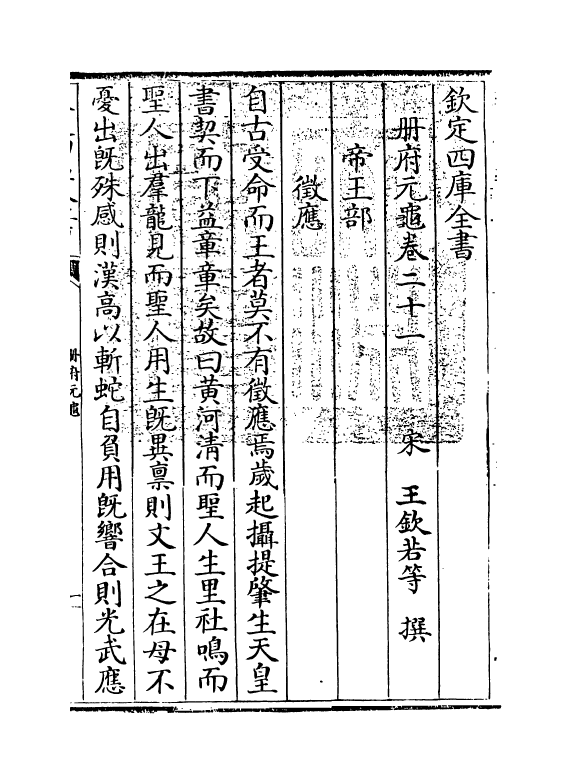 欽定四庫全書
冊府元龜卷二十一　宋　王欽若等　撰
帝王部
徵應
自古受命而王者莫不有徵應焉歲起攝提肇生天皇
書契而下益章章矣故曰黄河清而聖人生里社鳴而
聖人出羣龍見而聖人用生旣異禀則文王之在母不
憂出旣殊感則漢高以斬蛇自負用旣響合則光武應
冊府元龜
一